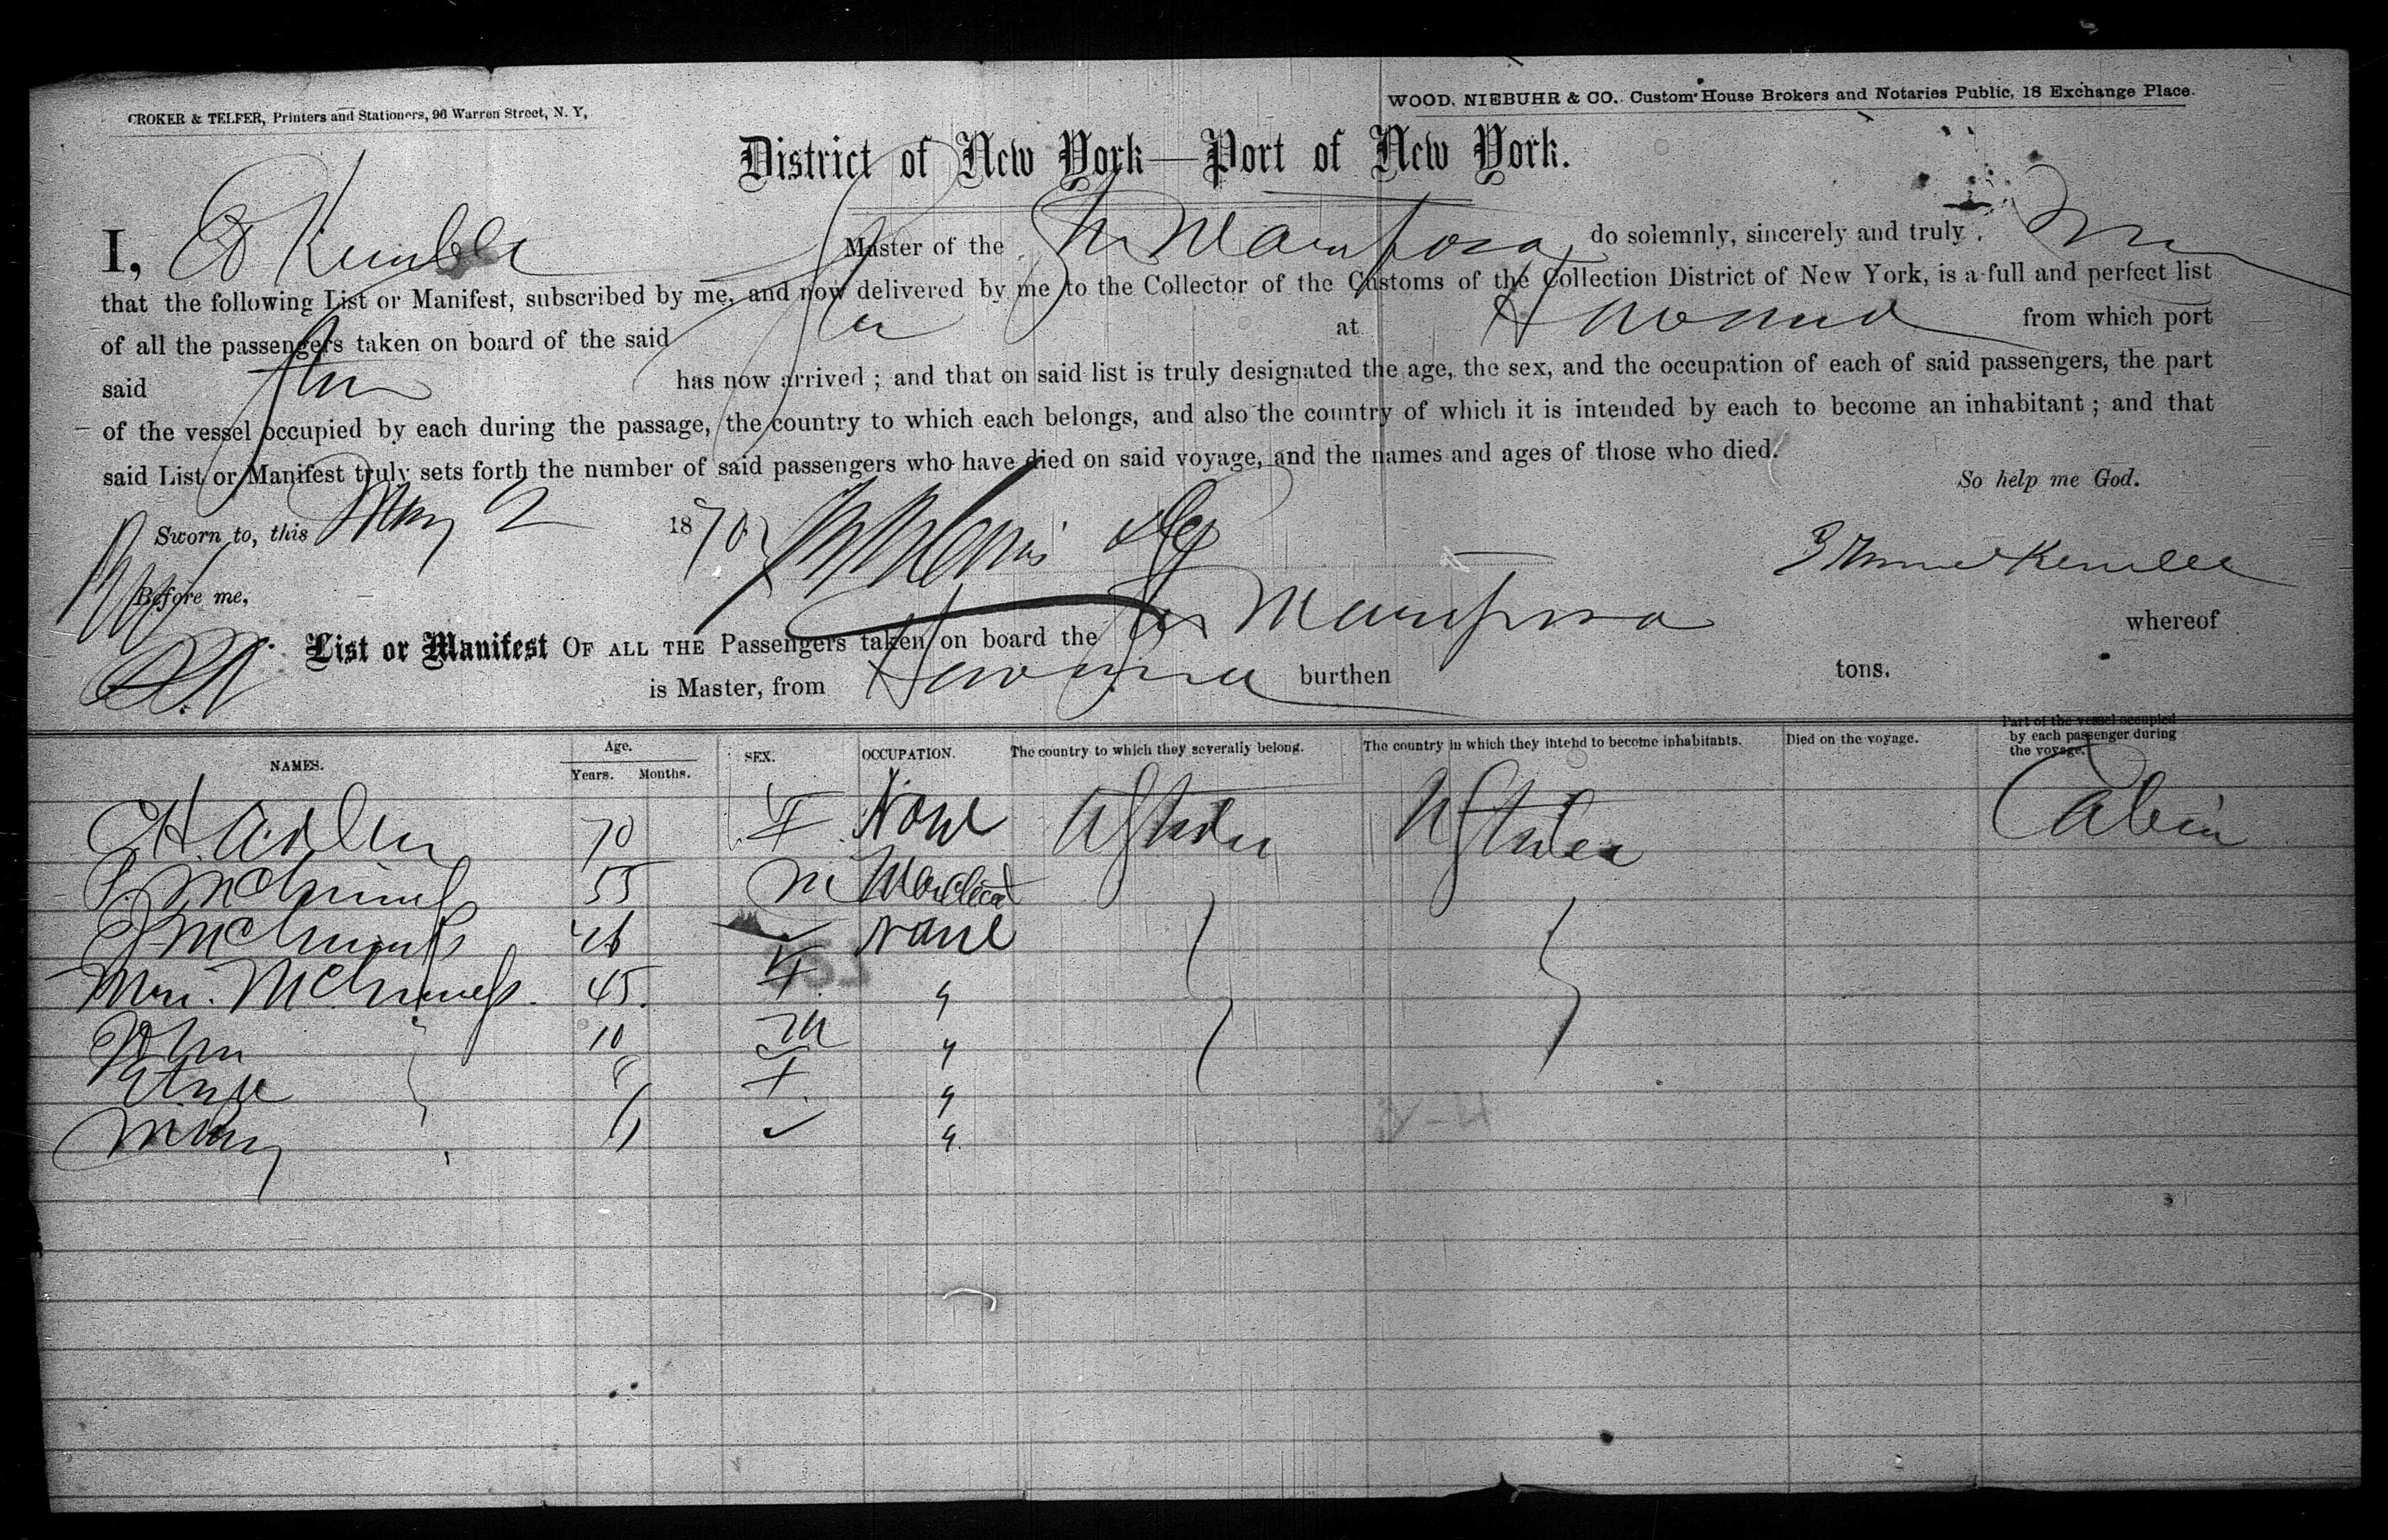 CROKER & TELFER, Printers and Stationers, 96 Warren Street, N. Y,
WOOD, NIEBUHR & CO., Custom House Brokers and Notaries Public, 18 Exchange Place.
District of New York—Port of New York.
I, Ed Kemble Master of the Str Mariposa do solemnly, sincerely and truly
that the following List or Manifest, subscribed by me, and now delivered by me to the Collector of the Customs of the Collection District of New York, is a full and perfect list
of all the passengers taken on board of the said Str at Havana from which port
said Str has now arrived ; and that on said list is truly designated the age, the sex, and the occupation of each of said passengers, the part
of the vessel occupied by each during the passage, the country to which each belongs, and also the country of which it is intended by each to become an inhabitant ; and that
said List or Manifest truly sets forth the number of said passengers who have died on said voyage, and the names and ages of those who died.
So help me God.
Sworn to, this May 2 1870
Kemble
Before me,
List or Manifest OF ALL THE Passengers taken on board the Str Mariposa whereof
is Master, from Havana burthen tons.
NAMES. Age. Years. Months. SEX. OCCUPATION. The country to which they severally belong. The country in which they intend to become inhabitants. Died on the voyage. Part of the vessel occupied by each passenger during the voyage.
70 F None U States U States Cabin
P. McGinnis 55 M Merchant
J McGinnis None
Mrs. McGinness 45. F. "
John 10 M "
F. "
Mary "